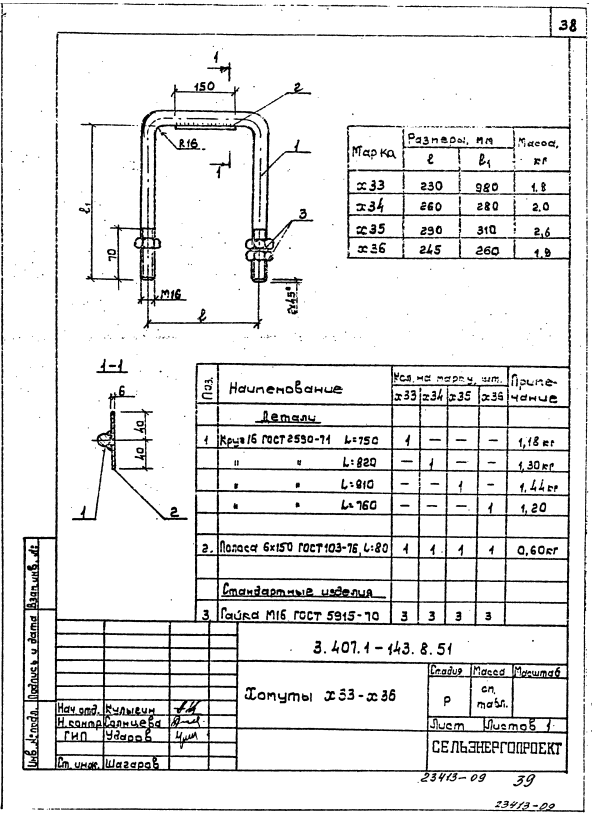 38
1
150
2
R16
1
1
3
l₁
70
M16
2x45°
l
Марка Размеры, мм Масса, кг
l l₁
х33 230 980 1,8
х34 260 280 2,0
х35 290 310 2,6
х36 245 260 1,8
1-1
6
40
40
1 2
Поз. Наименование Кол. на марку, шт. Приме-
чание
х33 х34 х35 х36
Детали
1 Круг 16 ГОСТ 2590-71 L=750 1 — — — 1,18 кг
" " L=820 — 1 — — 1,30 кг
" " L=910 — — 1 — 1,44 кг
" " L=760 — — — 1 1,20
2. Полоса 6х150 ГОСТ 103-76, L=80 1 1 1 1 0,60 кг
Стандартные изделия
3 Гайка М16 ГОСТ 5915-70 3 3 3 3
3.407.1-143.8.51
Хомуты х33-х36
Стадия Масса Масштаб
Р см. табл.
Лист Листов 1
СЕЛЬЭНЕРГОПРОЕКТ
Нач. отд. Кулыгин
Н. контр. Солнцева
ГИП Ударов
Ст. инж. Шагаров
Инв. № подл. Подпись и дата Взам. инв. №
23413-09 39
23413-09